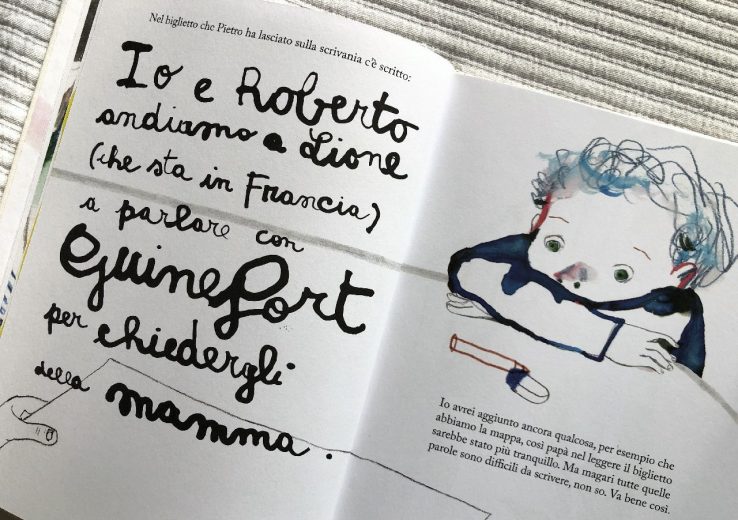 Nel biglietto che Pietro ha lasciato sulla scrivania c'è scritto:
Io e Roberto
andiamo a Lione
(che sta in Francia)
a parlare con
Guinefort
per chiedergli
della mamma.
Io avrei aggiunto ancora qualcosa, per esempio che
abbiamo la mappa, così papà nel leggere il biglietto
sarebbe stato più tranquillo. Ma magari tutte quelle
parole sono difficili da scrivere, non so. Va bene così.